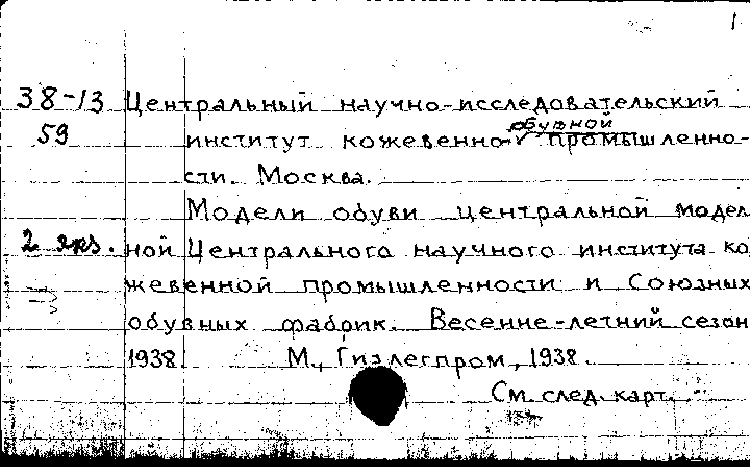 1
38-13 Центральный научно-исследовательский
59 институт кожевенно-обувной промышленно-
сти. Москва.
Модели обуви центральной модел
2 экз. ной Центрального научного института ко
жевенной промышленности и Союзных
обувных фабрик. Весенне-летний сезон
1938. М., Гизлегпром, 1938.
См. след. карт.